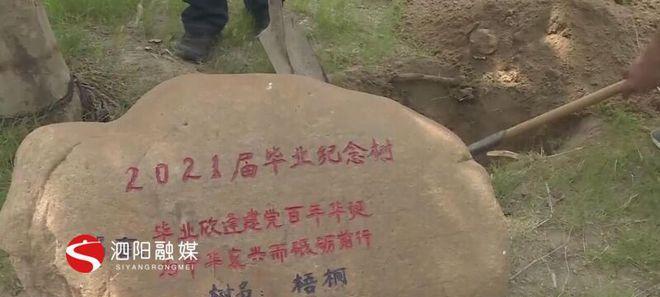 2021届毕业纪念树
毕业欣逢建党百年华诞
华
而砥砺前行
树名：梧桐
泗阳融媒
SIYANGRONGMEI